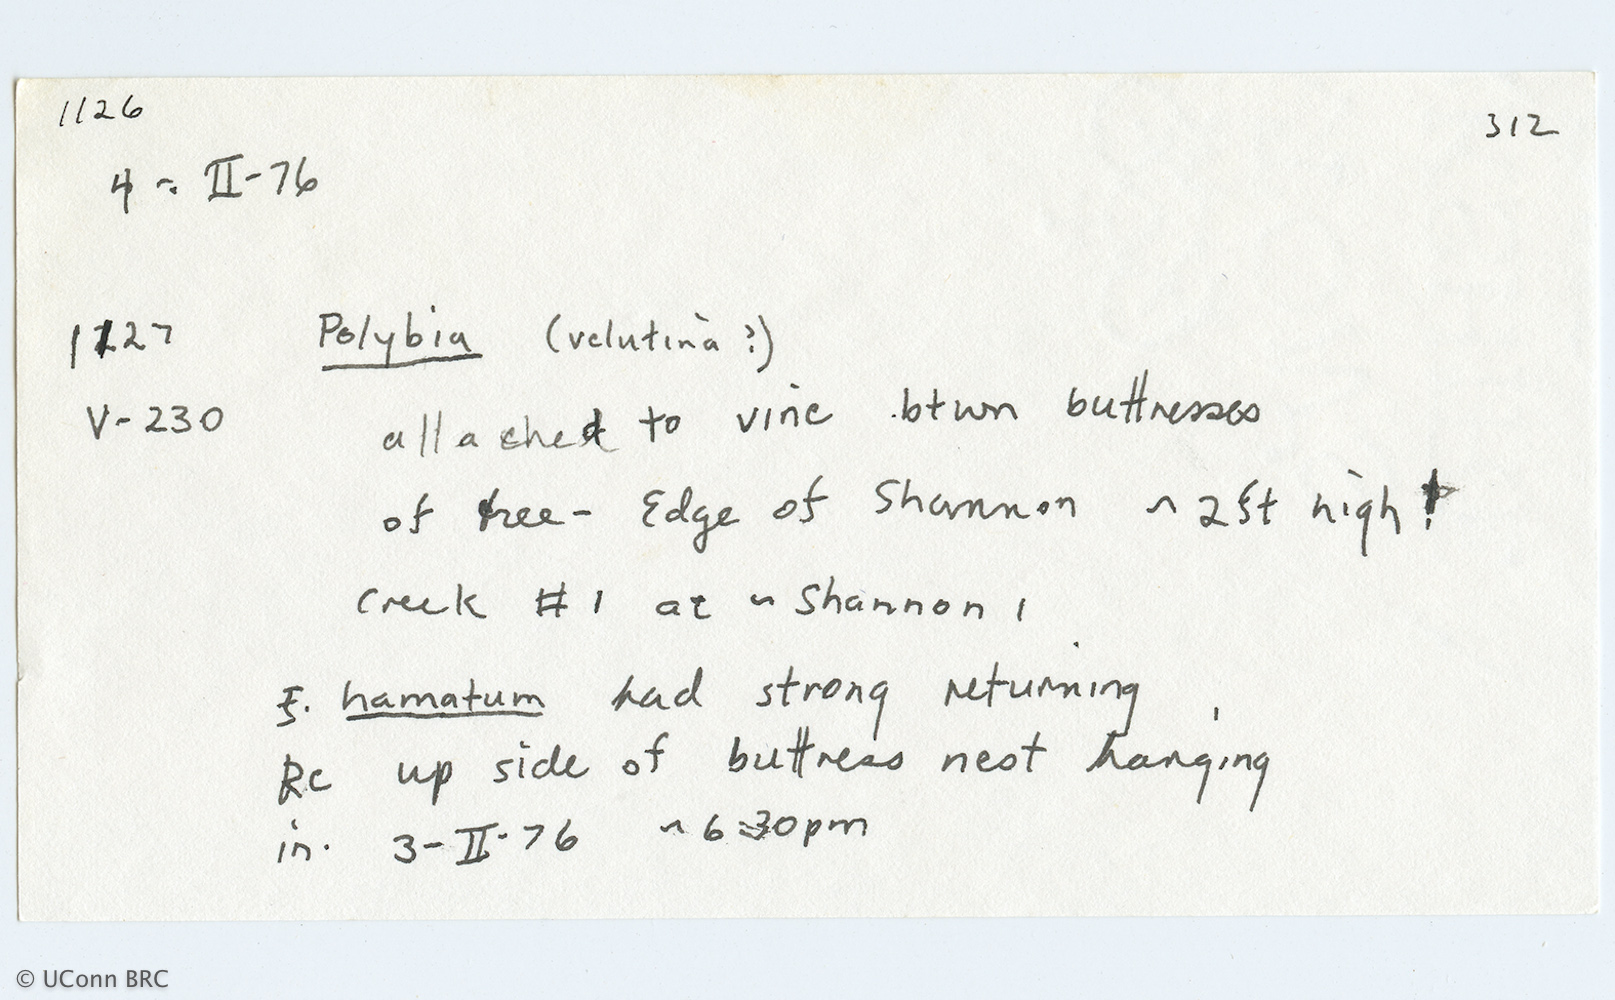 1126
312
4 - II-76
1127 Polybia (velutina?)
V-230 attached to vine btwn buttresses
of tree - Edge of Shannon ~ 2ft high
Creek #1 at ~ Shannon 1
E. hamatum had strong returning
RC up side of buttress nest hanging
in. 3-II-76 ~6:30pm
© UConn BRC